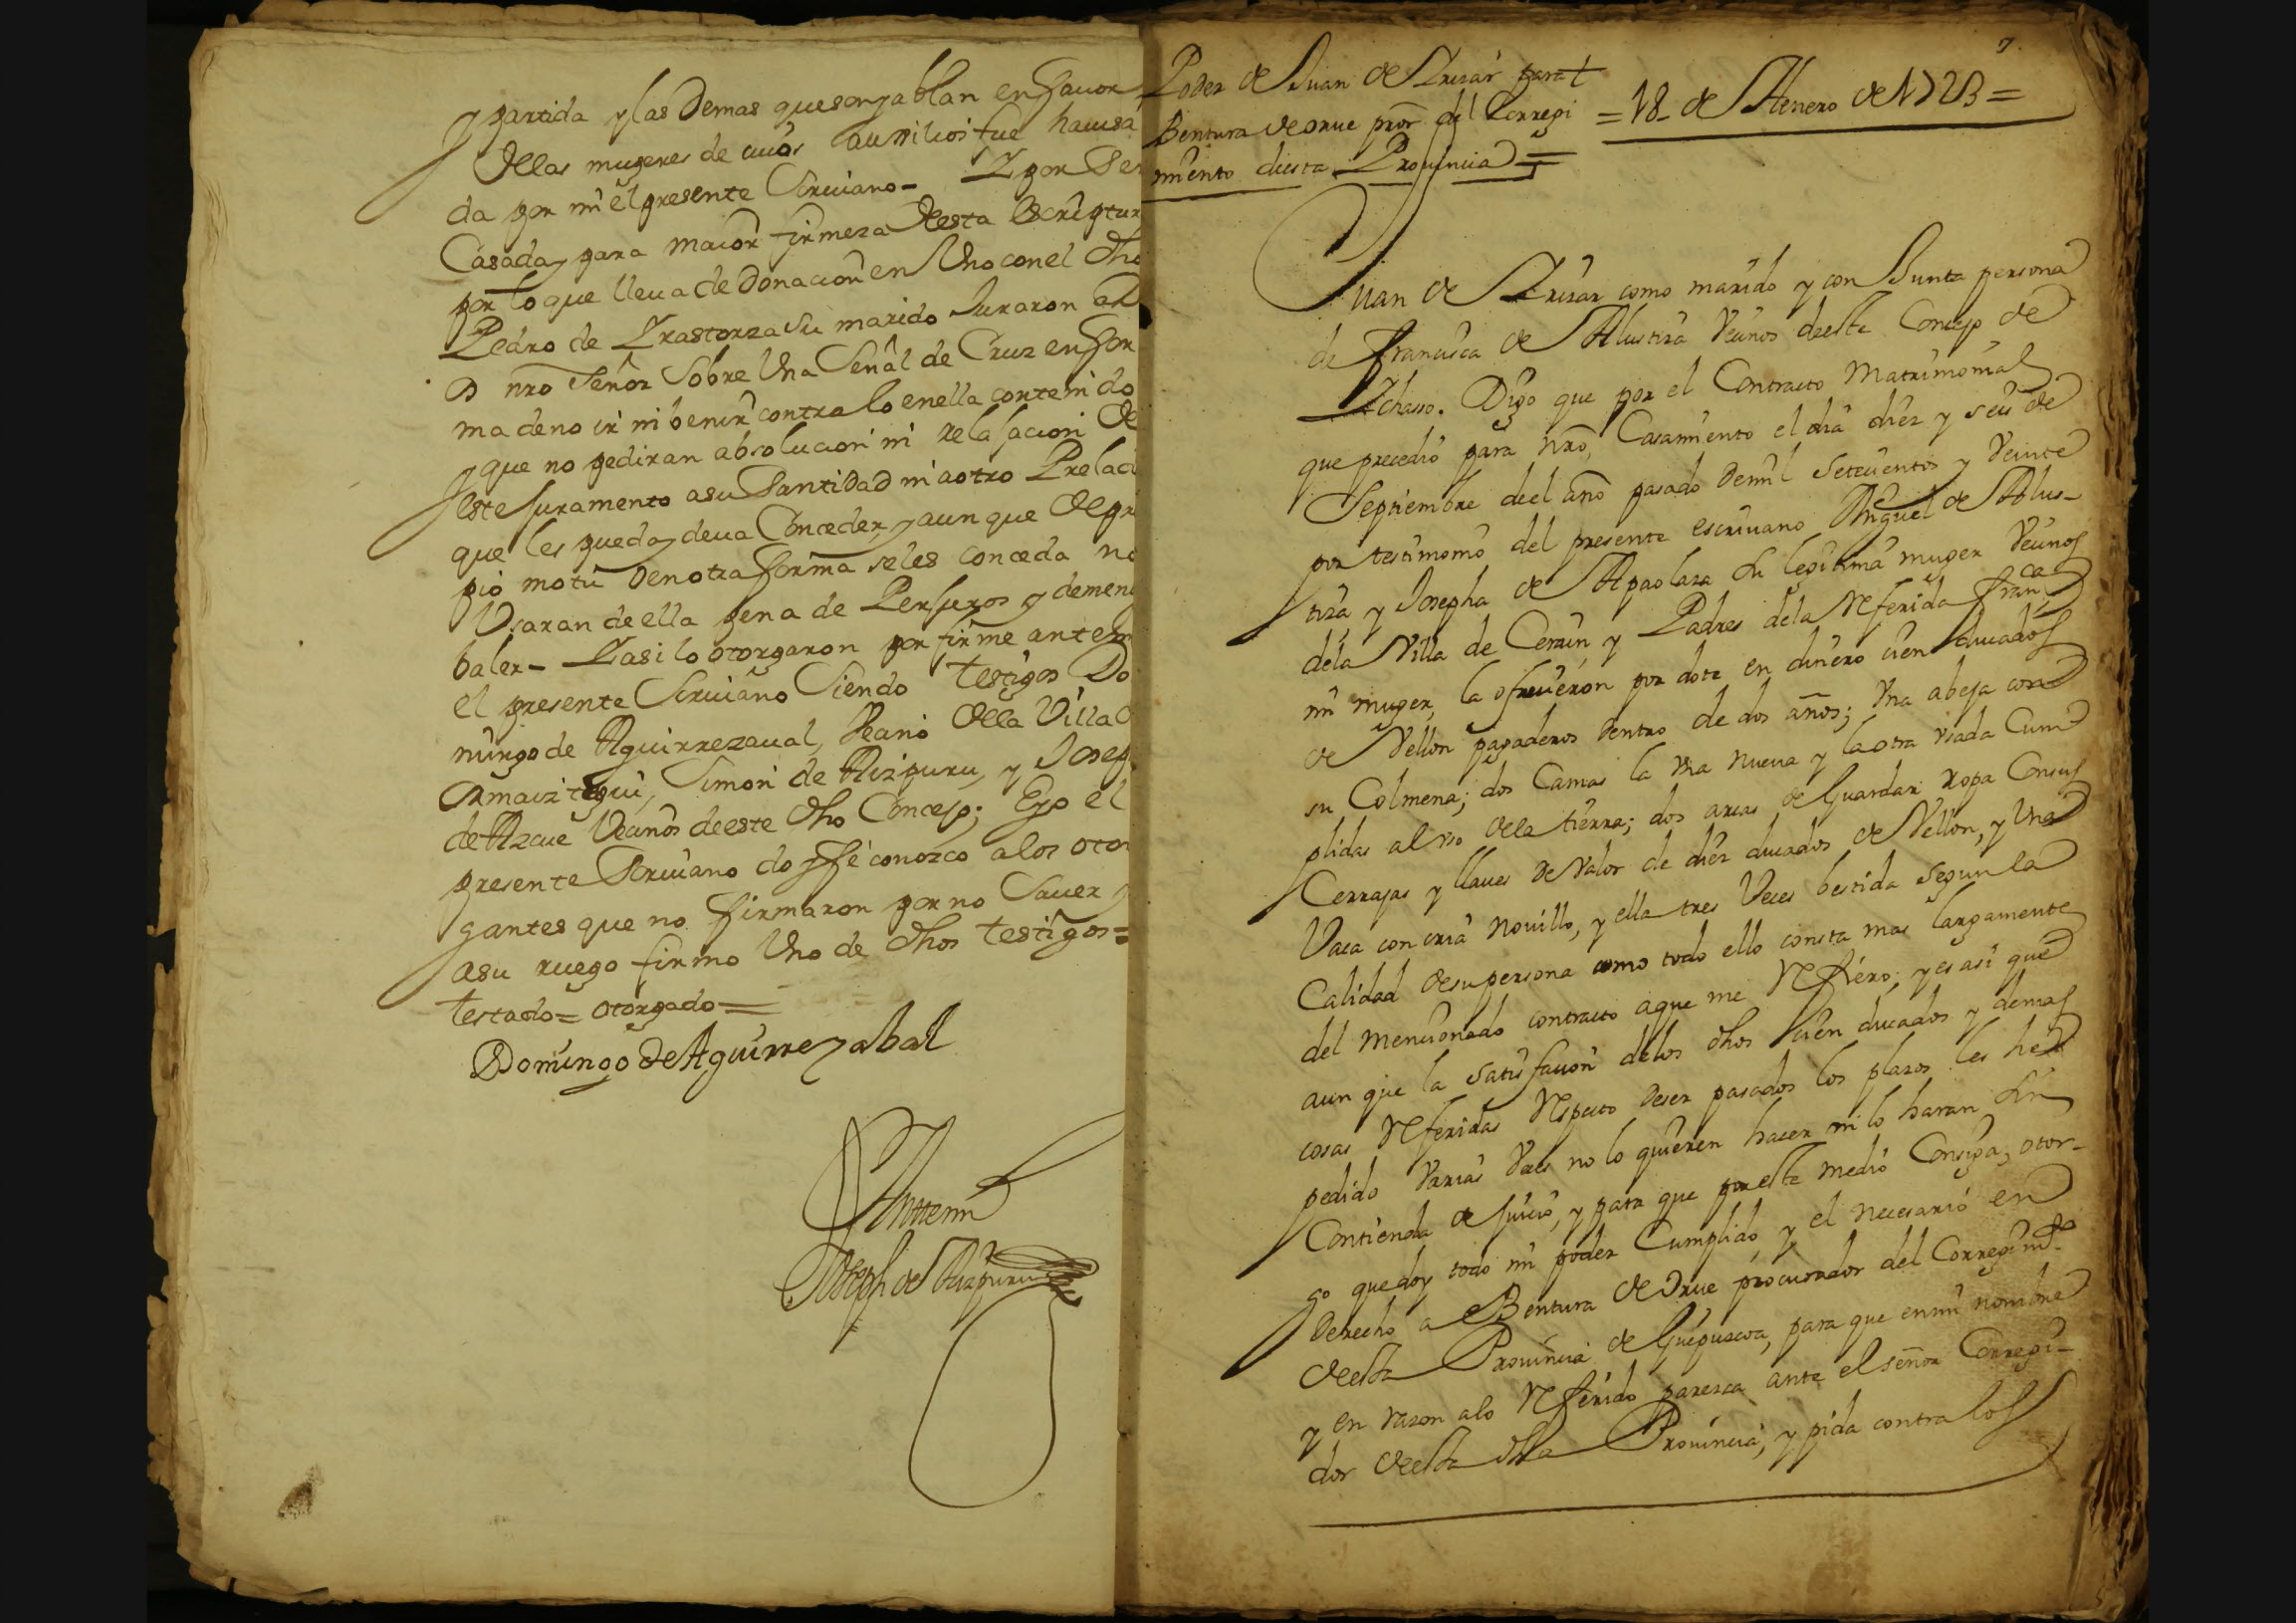 y partida y las Demas quesonyablan enfauor
Dellas mugeres de cuios auxilios fue hauisa
da por mi el presente Scriuano - Y por Ser
Casada, para maior firmeza Desta Escriptur
por lo que lleua de Donacion en Vno con el Dho
Pedro de Yrastorza Su marido Juraron aD
D nro Señor Sobre Vna Señal de Cruz enfor
ma deno ir ni benir contra lo enella contenido
y que no pediran absolucion ni relajacion De
este juramento asu Santidad ni aotro Prelado
que les pueda, deua Conceder, y aunque De pro
pio motu Denotra forma seles conceda no
Vsaran de ella pena de Perjuros y demen
baler - Y asi lo otorgaron por firme antemi
el presente Scriuano Siendo Testigos Do
mingo de Aguirrezaual, Veano Della Villa D
Ormaiztegui, Simon de Aizpuru, y Josep
de Azcue Vecinos de este Dho Concejo; Eyo el
presente Scriuano doy fé conozco alos otor
gantes que no firmaron por no Sauer, y
asu ruego firmo Vno de Dhos testigos=
Testado= otorgado=
Domingo De Aguirrezabal
Antemi
Joseph de Aizpuru
7.
Poder de Juan de Yrizar para
Bentura de orue pror del Corregi
miento diesta Prouincia =
= 18 - de Henero de 1723 =
Juan de Yrizar como marido y con Junta persona
de Francisca de Alustiza Vecinos deeste Concejo de
Ychasso. Digo que por el Contracto Matrimonial
que precedió para nro, Casamiento el dia diez y seis de
Septiembre deel año pasado Demil Setecientos y Veinte
por testimonio del presente escriuano Miguel de Alus-
tiza y Josepha de Apaolaza su legitima muger Vecinos
dela Villa de Cerain, y Padres dela Referida Franca
mi muger, la ofrecieron por dote en dinero cien ducados
de Vellon pagaderos dentro de dos años; Vna abeja con
su Colmena; dos Camas la vna nueua y la otra vsada Cum
plidas al vso dela tierra; dos arcas de Guardar ropa Consus
Cerrajas y llaues De valor de diez ducados de Vellon, y Vna
Vaca con cria nouillo, y ella tres Veces bestida Segun la
Calidad desu persona como todo ello consta mas largamente
del mencionado contracto aque me Refiero; y es asi que
aun que la satisfacion delos dhos cien ducados y demas
cosas Referidas Respecto Deser pasados los plazos les he
pedido Varias Vezes no lo quieren hacer ni lo haran sin
Contienda de Juicio, y para que poreste medio Consiga, otor-
go quedoy todo mi poder Cumplido, y el necesario en
Derecho a Bentura de Orue procurador del Corregimto
deesta Prouincia de Guipuzcoa, para que en mi nombre
y en razon alo Referido parezca ante el señor Corregi-
dor deesta dha Prouincia, y pida contra los